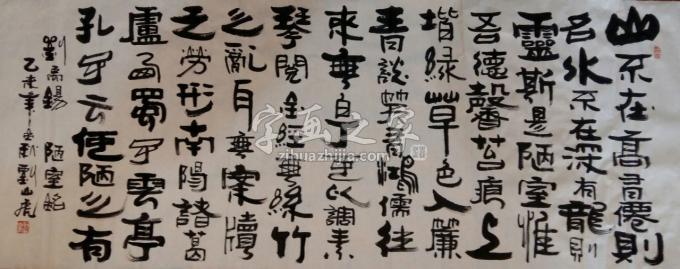 山不在高有僊則
名水不在深有龍則
靈斯是陋室惟
吾德馨苔痕上
堦綠草色入簾
青談笑有鴻儒往
來無白丁可以調素
琴閱金經無絲竹
之亂耳無案牘
之勞形南陽諸葛
廬西蜀子雲亭
孔子云何陋之有
劉禹錫 陋室銘
乙未年
字画之家
zihuazhijia.com